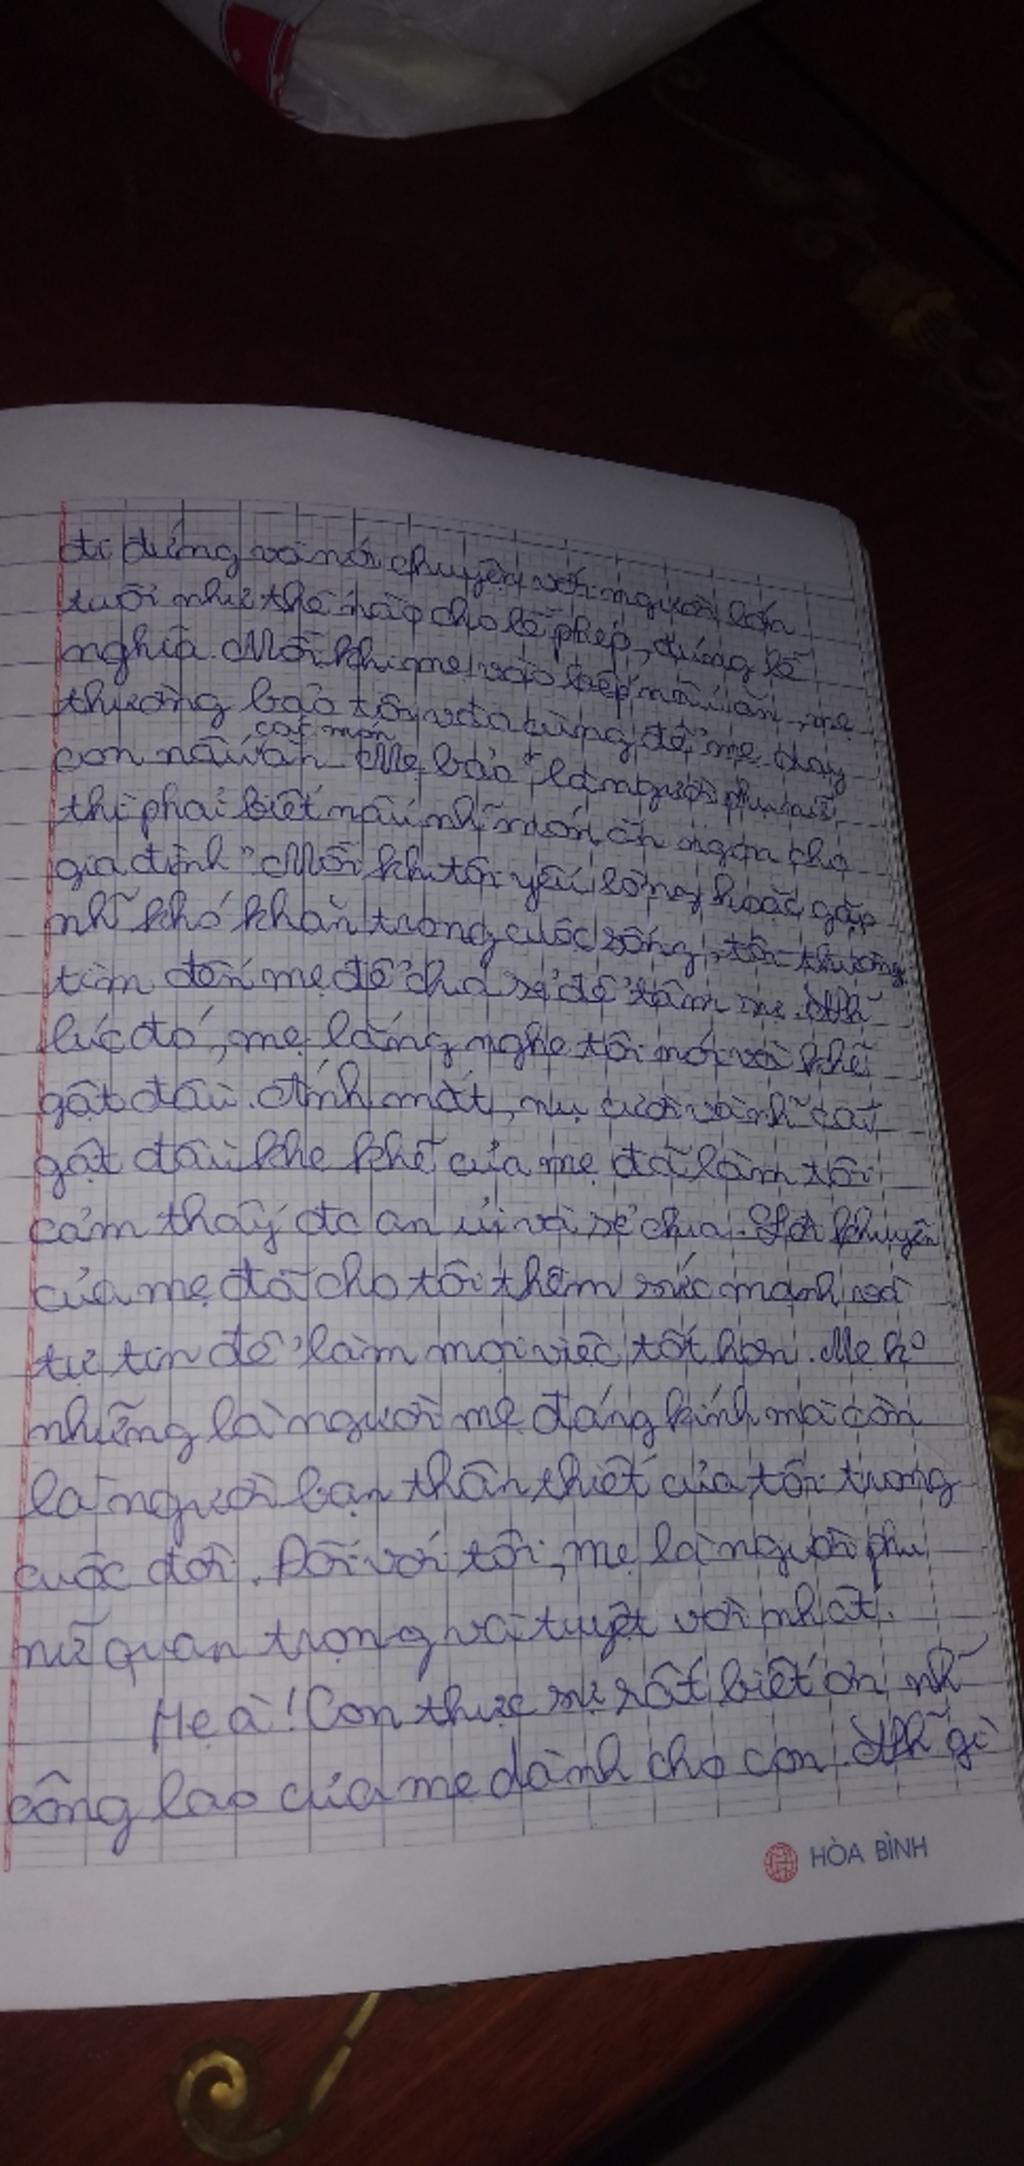 đi đứng và nói chuyện với người lớn
tuổi như thế nào cho lễ phép, đúng lễ
nghĩa. Mỗi khi mẹ vào bếp nấu ăn, mẹ
thường bảo tôi vào cùng để mẹ dạy
các món
con nấu ăn. Mẹ bảo "là người phụ nữ,
thì phải biết nấu nh~ món ăn ngon cho
gia đình". Mỗi khi tôi yếu lòng hoặc gặp
nh~ khó khăn trong cuộc sống, tôi thường
tìm đến mẹ để chia sẻ để tâm mẹ. Nh~
lúc đó, mẹ lắng nghe tôi nói và khẽ
gật đầu. Ánh mắt, nụ cười và nh~ cái
gật đầu khe khẽ của mẹ đã làm tôi
cảm thấy đc an ủi và sẻ chia. Lời khuyên
của mẹ đã cho tôi thêm sức mạnh và
tự tin để làm mọi việc tốt hơn. Mẹ ko
những là người mẹ đáng kính mà còn
là người bạn thân thiết của tôi trong
cuộc đời. Đối với tôi, mẹ là người phụ
nữ quan trọng và tuyệt vời nhất.
Mẹ à! Con thực sự rất biết ơn nh~
công lao của mẹ dành cho con. Nh~ gì
HÒA BÌNH